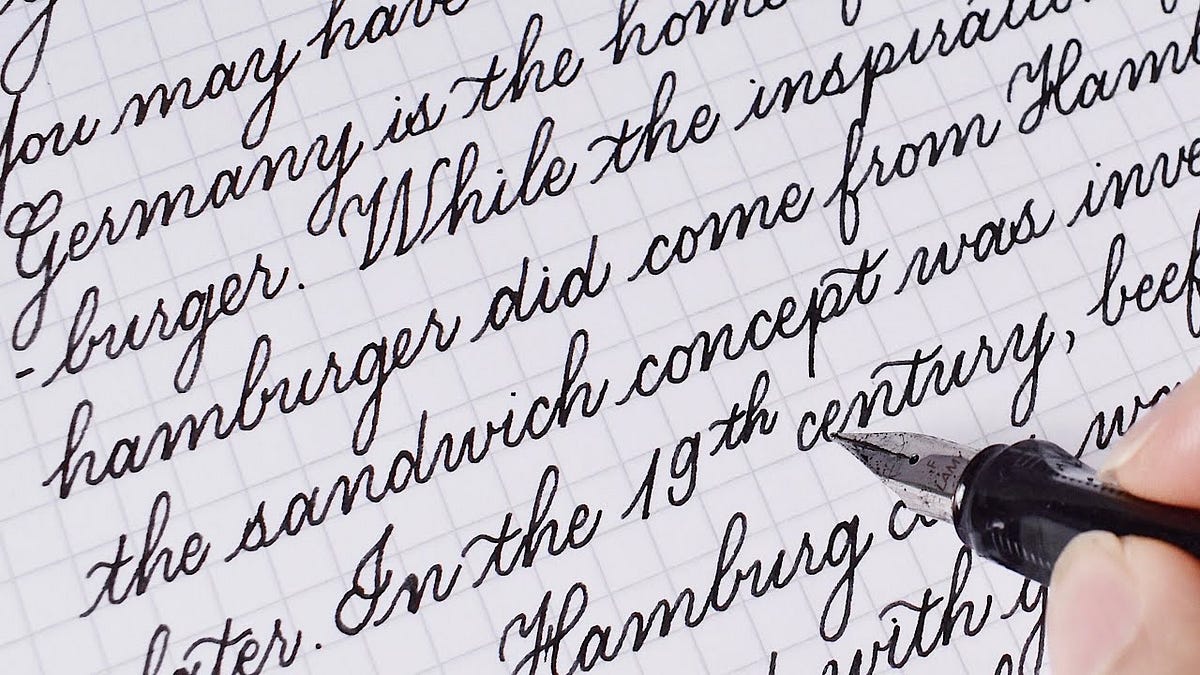 you may have
Germany is the home
- burger. While the inspiration
hamburger did come from Hamb
the sandwich concept was inve
later. In the 19th century, beef
Hamburg
with